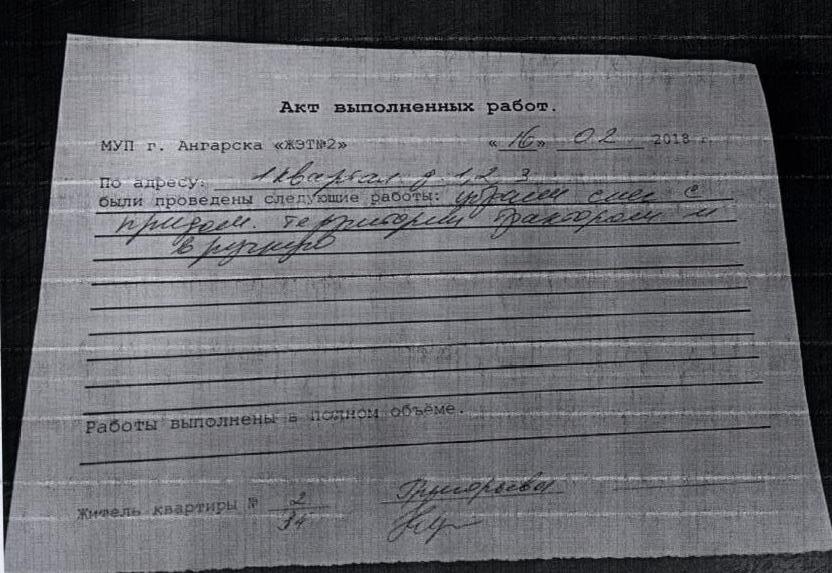 Акт выполненных работ.
МУП г. Ангарска «ЖЭТ№2» «16» 02 2018 г.
По адресу: 1 квартал д. 1, 2, 3
были проведены следующие работы: убрали снег с
придом. территории трактором и
в ручную
Работы выполнены в полном объёме.
Житель квартиры № 2 Григорьева
34